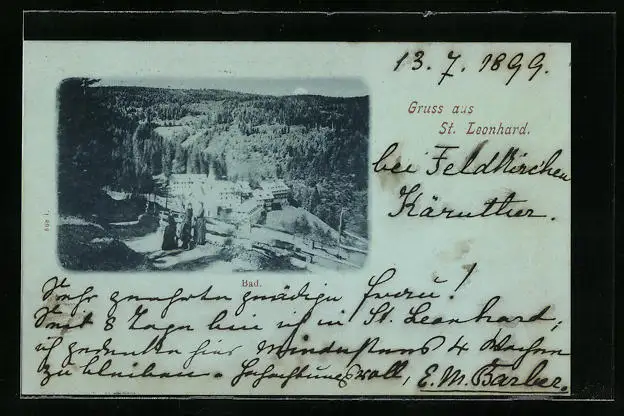 13. 7. 1899.
Gruss aus
St. Leonhard.
bei Feldkirchen
Kärnthen.
Bad.
Sehr geehrte gnädige Frau!
Seit 8 Tagen bin ich in St. Leonhard;
ich gedenke hier mindestens 4 Wochen
zu bleiben. Hochachtungsvoll, E. M. Barber.